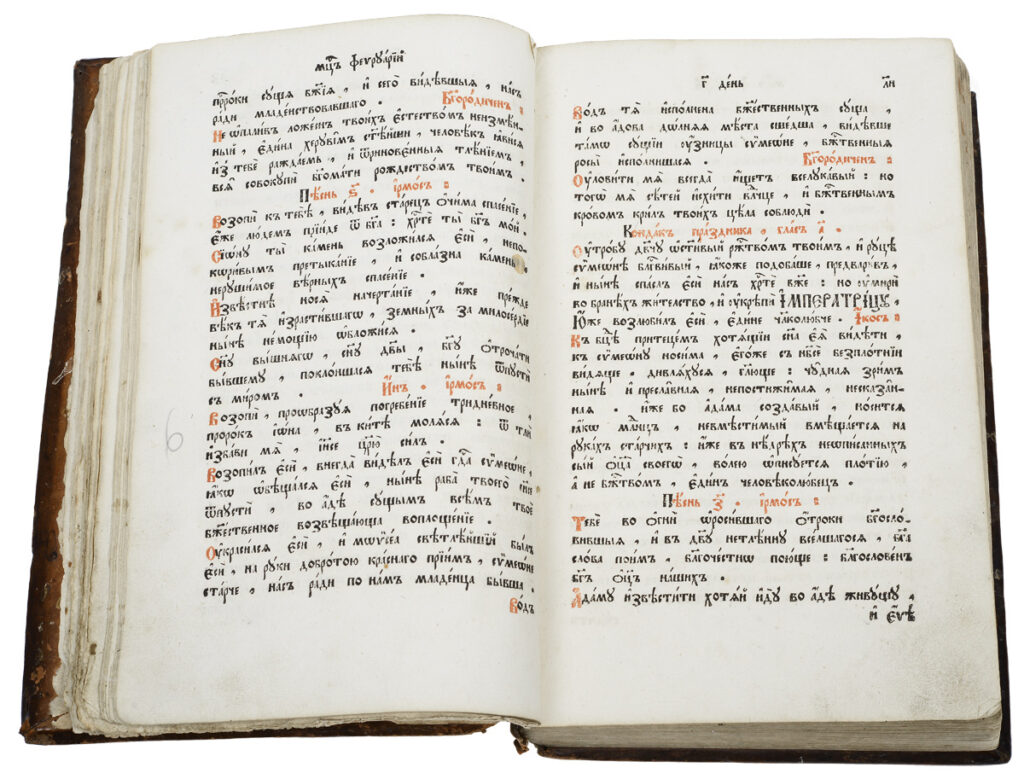 мц҃ъ феvрꙋарїй
прⷪ҇роки сꙋщꙗ бж҃їѧ , и҆ сего̀ ви́дѣвшыѧ , на́съ
ра́ди младе́нствовавшаго . Бг҃оро́диченъ :
Не ѡ҆пали́въ ложе́снъ твои́хъ є҆стество́мъ неизмѣ́н-
ный , є҆ди́на херꙋві́мъ ст҃ѣ́йши , человѣ́къ ꙗ҆ви́сѧ
и҆з̾ тебѐ ражда́емь , и҆ ѿринове́нныѧ тлѣ́нїемъ ,
всѧ̑ совокꙋпѝ бг҃ома́ти рождество́мъ твои́мъ .
Пѣ́снь ѕ҃ . і҆рмо́съ :
Возопѝ къ тебѣ̀ , ви́дѣвъ ста́рецъ ѻ҆чи́ма спасе́нїе ,
є҆́же лю́демъ прїи́де ѿ бг҃а : хрⷭ҇тѐ ты̀ бг҃ъ мо́й .
Сїѡ́нꙋ ты̀ ка́мень возложи́лсѧ є҆сѝ , непо-
кѡри̑вымъ претыка́нїе , и҆ собла́зна ка́мень ,
нерꙋши́мое вѣ́рныхъ спасе́нїе .
И҆звѣ́стнѣ носѧ̀ начерта́нїе , и҆́же пре́жде
вѣ̑къ тѧ̀ и҆зрасти́вшагѡ , земны́хъ за милосе́рдїе
ны́нѣ не́мощїю ѡ҆бложи́сѧ .
Сн҃ꙋ вы́шнѧгѡ , сн҃ꙋ дв҃ы , бг҃ꙋ ѻ҆троча́ти
бы́вшемꙋ , поклони́шасѧ тебѣ̀ ны́нѣ ѿпꙋстѝ
съ ми́ромъ .
И҆́нъ . і҆рмо́съ :
Возопѝ , проѡбразꙋ́ѧ погребе́нїе тридне́вное ,
проро́къ і҆ѡ́на , въ ки́тѣ молѧ́сѧ : ѿ тлѝ
и҆зба́ви мѧ̀ , і҆и҃се цр҃ю̀ си́лъ .
Возопи́лъ є҆сѝ , внегда̀ ви́дѣлъ є҆сѝ гдⷭ҇а сѷмеѡ́не ,
ꙗ҆́кѡ ѡ҆бѣща́лсѧ є҆сѝ , ны́нѣ раба̀ твоего̀ і҆и҃се
ѿпꙋстѝ , во а҆́дѣ сꙋ́щымъ всѣ̑мъ твоѐ
бжⷭ҇твенное возвѣща́юща воплоще́нїе .
Оу҆краси́лсѧ є҆сѝ , и҆ мѡѷсе́а свѣтлѣ́йшїй бы́лъ
є҆сѝ , на рꙋ́ки добро́тою кра́снаго прїи́мъ , сѷмеѡ́не
ста́рче , на́съ ра́ди по на́мъ младе́нца бы́вша .
Во́дъ
г҃ де́нь л҃и
Во́дъ тѧ̀ и҆спо́лнена бжⷭ҇твенныхъ сꙋ́ща ,
и҆ во а҆́дова дѡ́лнѧѧ мѣ́ста сше́дша , ви́дѣвше
та́мѡ сꙋ́щїи ᲂу҆́зницы сѷмеѡ́не , бжⷭ҇твенныѧ
росы̀ и҆спо́лнишасѧ . Бг҃оро́диченъ :
Оу҆лови́ти мѧ̀ всегда̀ и҆́щетъ вселꙋка́вый : но
тогѡ̀ мѧ̀ сѣ́тей и҆схи́ти влⷣчце , и҆ бжⷭ҇твеннымъ
кро́вомъ кри́лъ твои́хъ цѣ́ла соблюдѝ .
Конда́къ пра́здника , гла́съ а҃ .
Оу҆тро́бꙋ дв҃чꙋ ѡ҆ст҃и́вый рж҃тво́мъ твои́мъ , и҆ рꙋ́цѣ
сѷмеѡ́нѣ блгⷭ҇ви́вый , ꙗ҆́коже подоба́ше , предвари́въ ,
и҆ ны́нѣ спа́слъ є҆сѝ на́съ хрⷭ҇тѐ бж҃е : но ᲂу҆мирѝ
во бра́нехъ жи́тельство , и҆ ᲂу҆крѣпѝ І҆МПЕРАТРИ́ЦꙊ ,
Ю҆́же возлюби́лъ є҆сѝ , є҆ди́не чл҃колю́бче . І҆́косъ :
Къ бцⷣѣ прите́цемъ хотѧ́щїи сн҃а є҆ѧ̀ ви́дѣти ,
къ сѷмеѡ́нꙋ носи́ма , є҆го́же съ нб҃сѐ безпло́тнїи
ви́дѧще . дивлѧ́хꙋсѧ , гл҃юще : чꙋ̑днаѧ зри́мъ
ны́нѣ и҆ пресла̑внаѧ , непостижи̑маѧ , несказа̑н-
наѧ . и҆́же во а҆да́ма созда́вый , но́ситсѧ
ꙗ҆́кѡ млⷣнцъ , невмѣсти́мый вмѣща́етсѧ на
рꙋка́хъ ста́рчихъ : и҆́же въ нѣ́дрѣхъ неѡпи́санныхъ
сы́й ѻ҆ц҃а̀ своегѡ̀ , во́лею ѡ҆пи́сꙋетсѧ пло́тїю ,
а҆ не бжⷭ҇тво́мъ , є҆ди́нъ человѣколю́бецъ .
Пѣ́снь з҃ . і҆рмо́съ :
Тебѐ во ѻ҆гнѝ ѡ҆роси́вшаго ѻ҆́троки бг҃осло́-
вившыѧ , и҆ въ дв҃ꙋ нетлѣ́ннꙋ всельша́госѧ , бг҃а
сло́ва пои́мъ , бл҃гоче́стнѡ пою́ще : благослове́нъ
бг҃ъ ѻ҆ц҃ъ на́шихъ .
А҆да́мꙋ и҆звѣсти́ти хотѧ́й и҆дꙋ̀ во а҆́дѣ живꙋ́щꙋ ,
и҆ є҆́ѵѣ